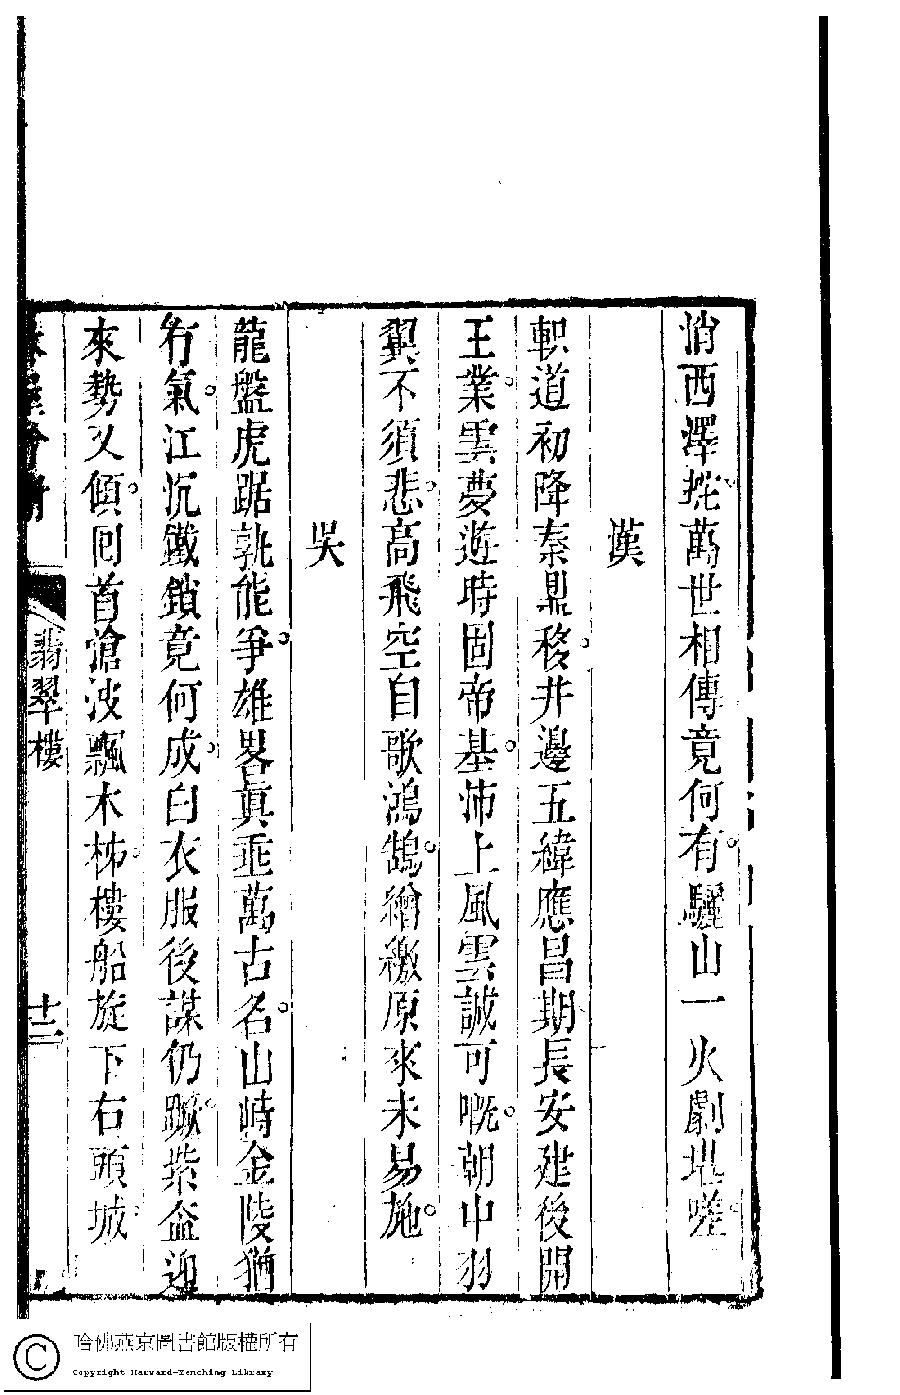 悄西澤挓萬世相傳竟何有驪山一火劇堪嗟
漢
軹道初降秦鼎移井邊五緯應昌期長安建後開
王業雲夢遊時固帝基沛上風雲誠可嘅朝中羽
翼不須悲高飛空自歌鴻鵠繒繳原來未易施
吳
龍盤虎踞孰能爭雄畧真垂萬古名山峙金陵猶
有氣江沉鐵鎖竟何成白衣服後謀仍蹶紫盆迎
來勢又傾回首滄波飄木柹樓船旋下石頭城
翡翠樓
十三
哈佛燕京圖書館版權所有
Copyright Harvard-Yenching Library